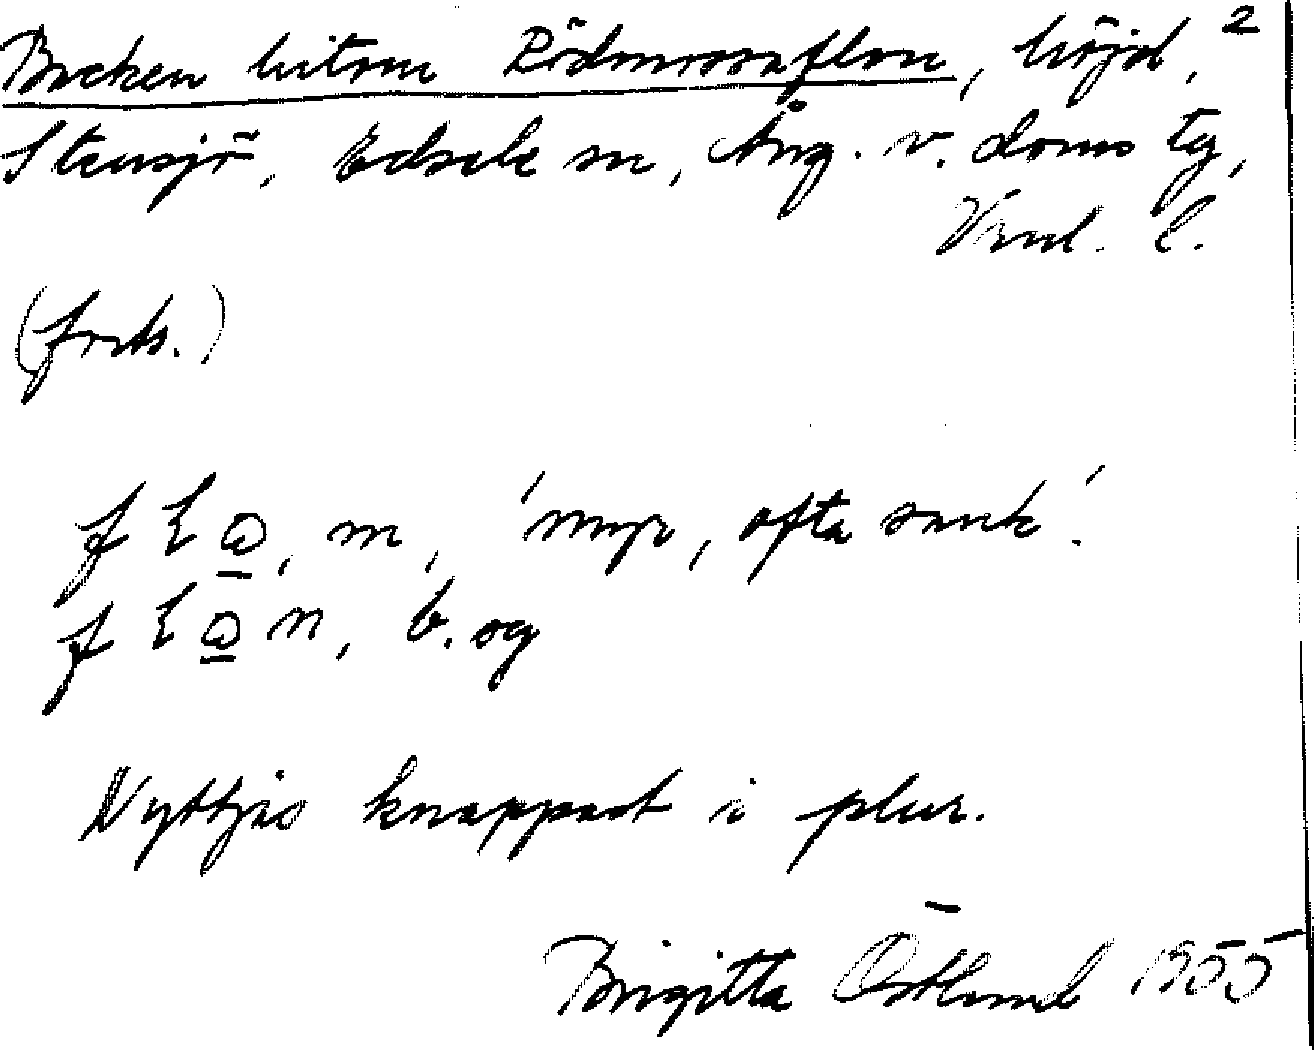 Backen hitom Rödmossaflon, höjd, 2
Stensjö, Edsele sn, Ång. v. doms tg,
Vnl. l.
(forts.)
f l a, m, 'myr, ofta sank'.
f l a n, b. sg
Nyttjas knappast i plur.
Birgitta Östlund 1955